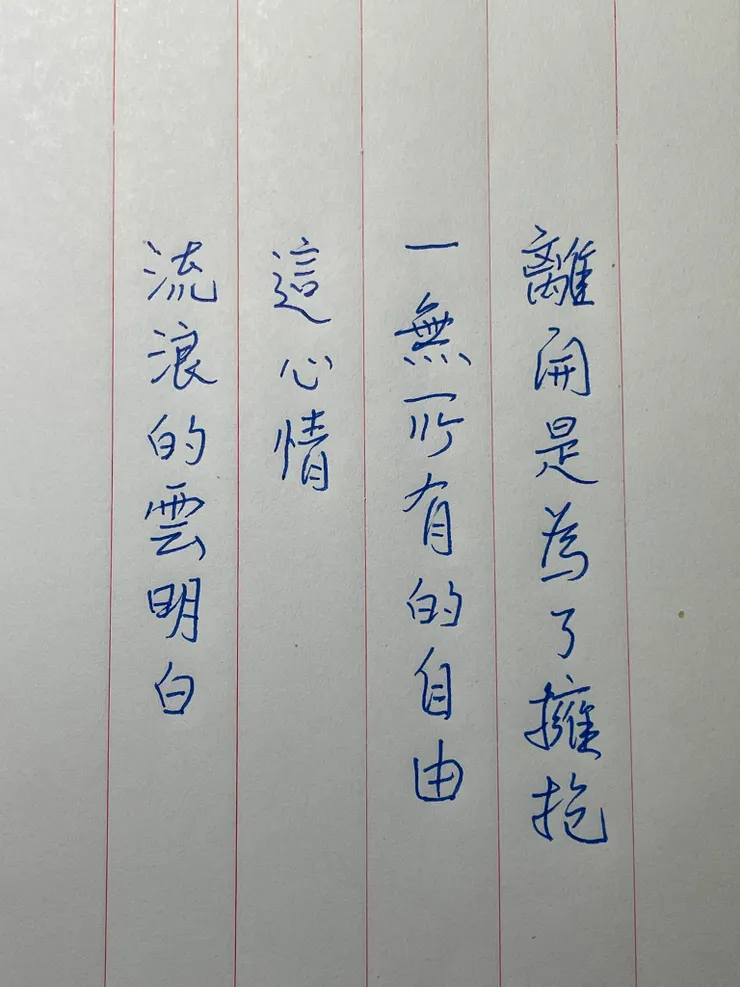 離開是為了擁抱
一無所有的自由
這心情
流浪的雲明白